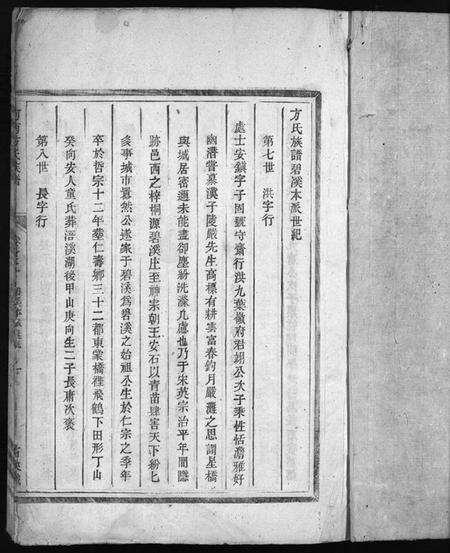 方氏族譜碧溪本派世紀
第七世 洪字行
處士安鎮字子固號守齋行洪九葉徽府君翊公次子秉性恬澹雅好
幽潛嘗慕漢子陵嚴先生高標有耕雲富春釣月嚴灘之思謂星橋
與城居密邇未能盡卻塵紛洗滌凡慮也乃于宋英宗治平年間隱
跡邑西之梓桐源碧溪庄至神宗朝王安石以青苗肆害天下紛匕
多事城市囂然公遂家于碧溪為碧溪之始祖公生於仁宗之季年
卒於哲宗十二年葬仁壽鄉三十二都東棠橋獲飛鶴下田形丁山
癸向安人童氏葬浯溪湖後甲山庚向生二子長肅次褒
第八世 長字行